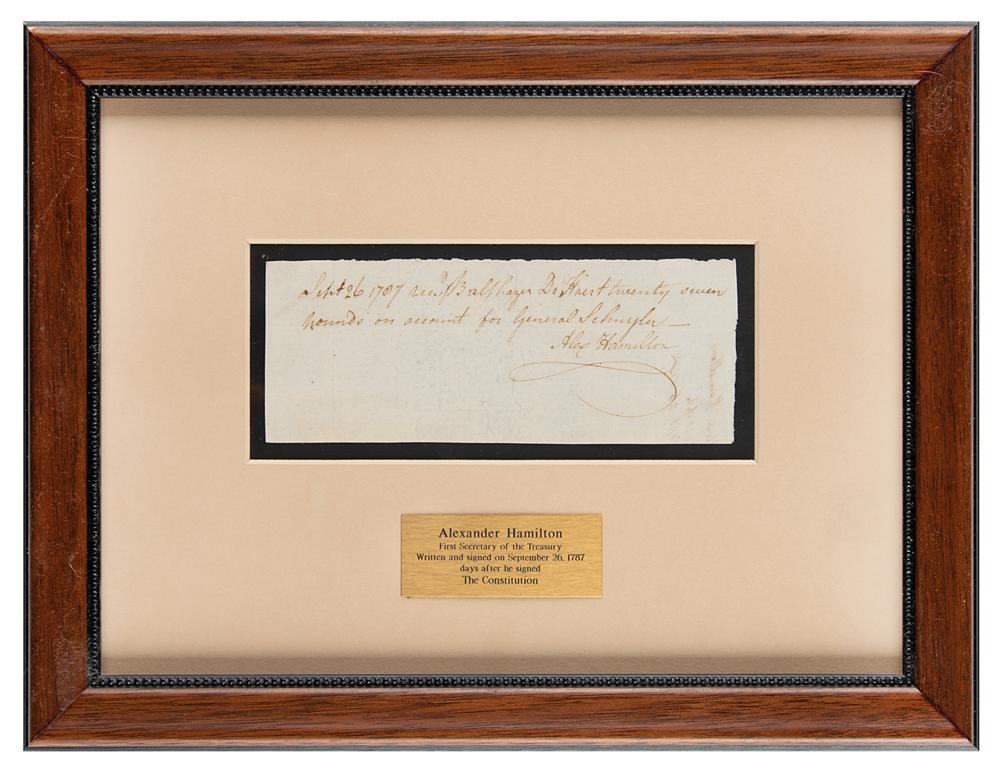 Sept 26 1787 recd Balthazer De Haert twenty seven
pounds on account for General Schuyler —
Alex Hamilton
Alexander Hamilton
First Secretary of the Treasury
Written and signed on September 26, 1787
days after he signed
The Constitution